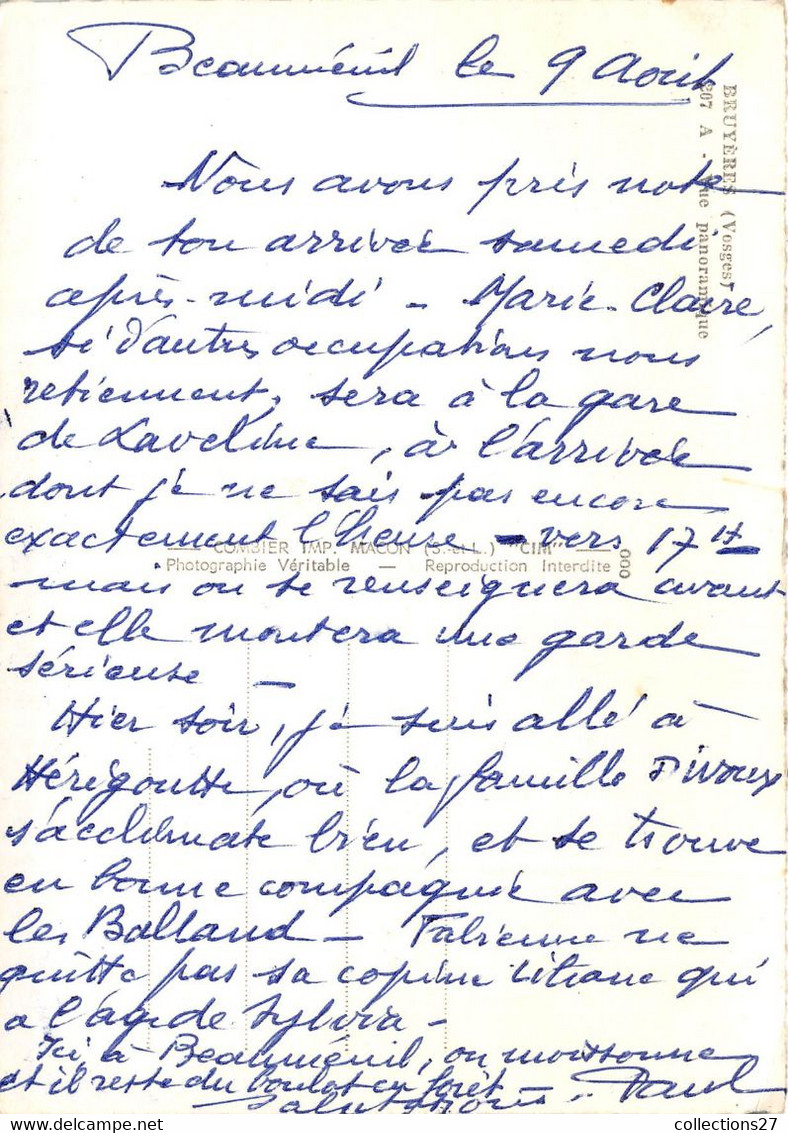 Beauménil le 9 Août
BRUYÈRES (Vosges)
207 A - Vue panoramique
Nous avons pris note
de ton arrivée samedi
après-midi - Marie-Claire,
si d'autres occupations nous
retiennent, sera à la gare
de Laveline, à l'arrivée
dont je ne sais pas encore
exactement l'heure - vers 17 H
COMBIER IMP. MACON (S.-et-L.) "CIM"
Photographie Véritable — Reproduction Interdite
000
mais on se renseignera avant
et elle montera une garde
sérieuse -
Hier soir, je suis allé à
Hérigoutte, où la famille Divoux
s'acclimate bien, et se trouve
en bonne compagnie avec
les Balland - Fabienne ne
quitte pas sa copine Liliane qui
a l'âge de Sylvia -
Ici à Beauménil, on moissonne
et il reste du boulot en forêt
Salutations - Paul
collections27